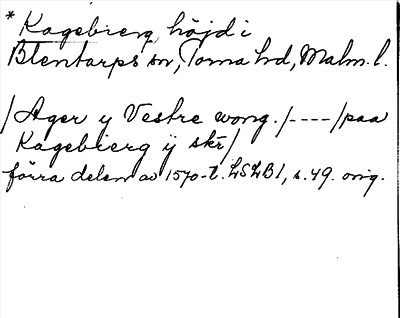 * Kagebierg, höjd i
Blentarps sn, Torna hd, Malm. l.
/Ager y Vestre wong. /----/paa
Kagebierg ij skr/
förra delen av 1570-t. LSLB 1, s. 49. orig.